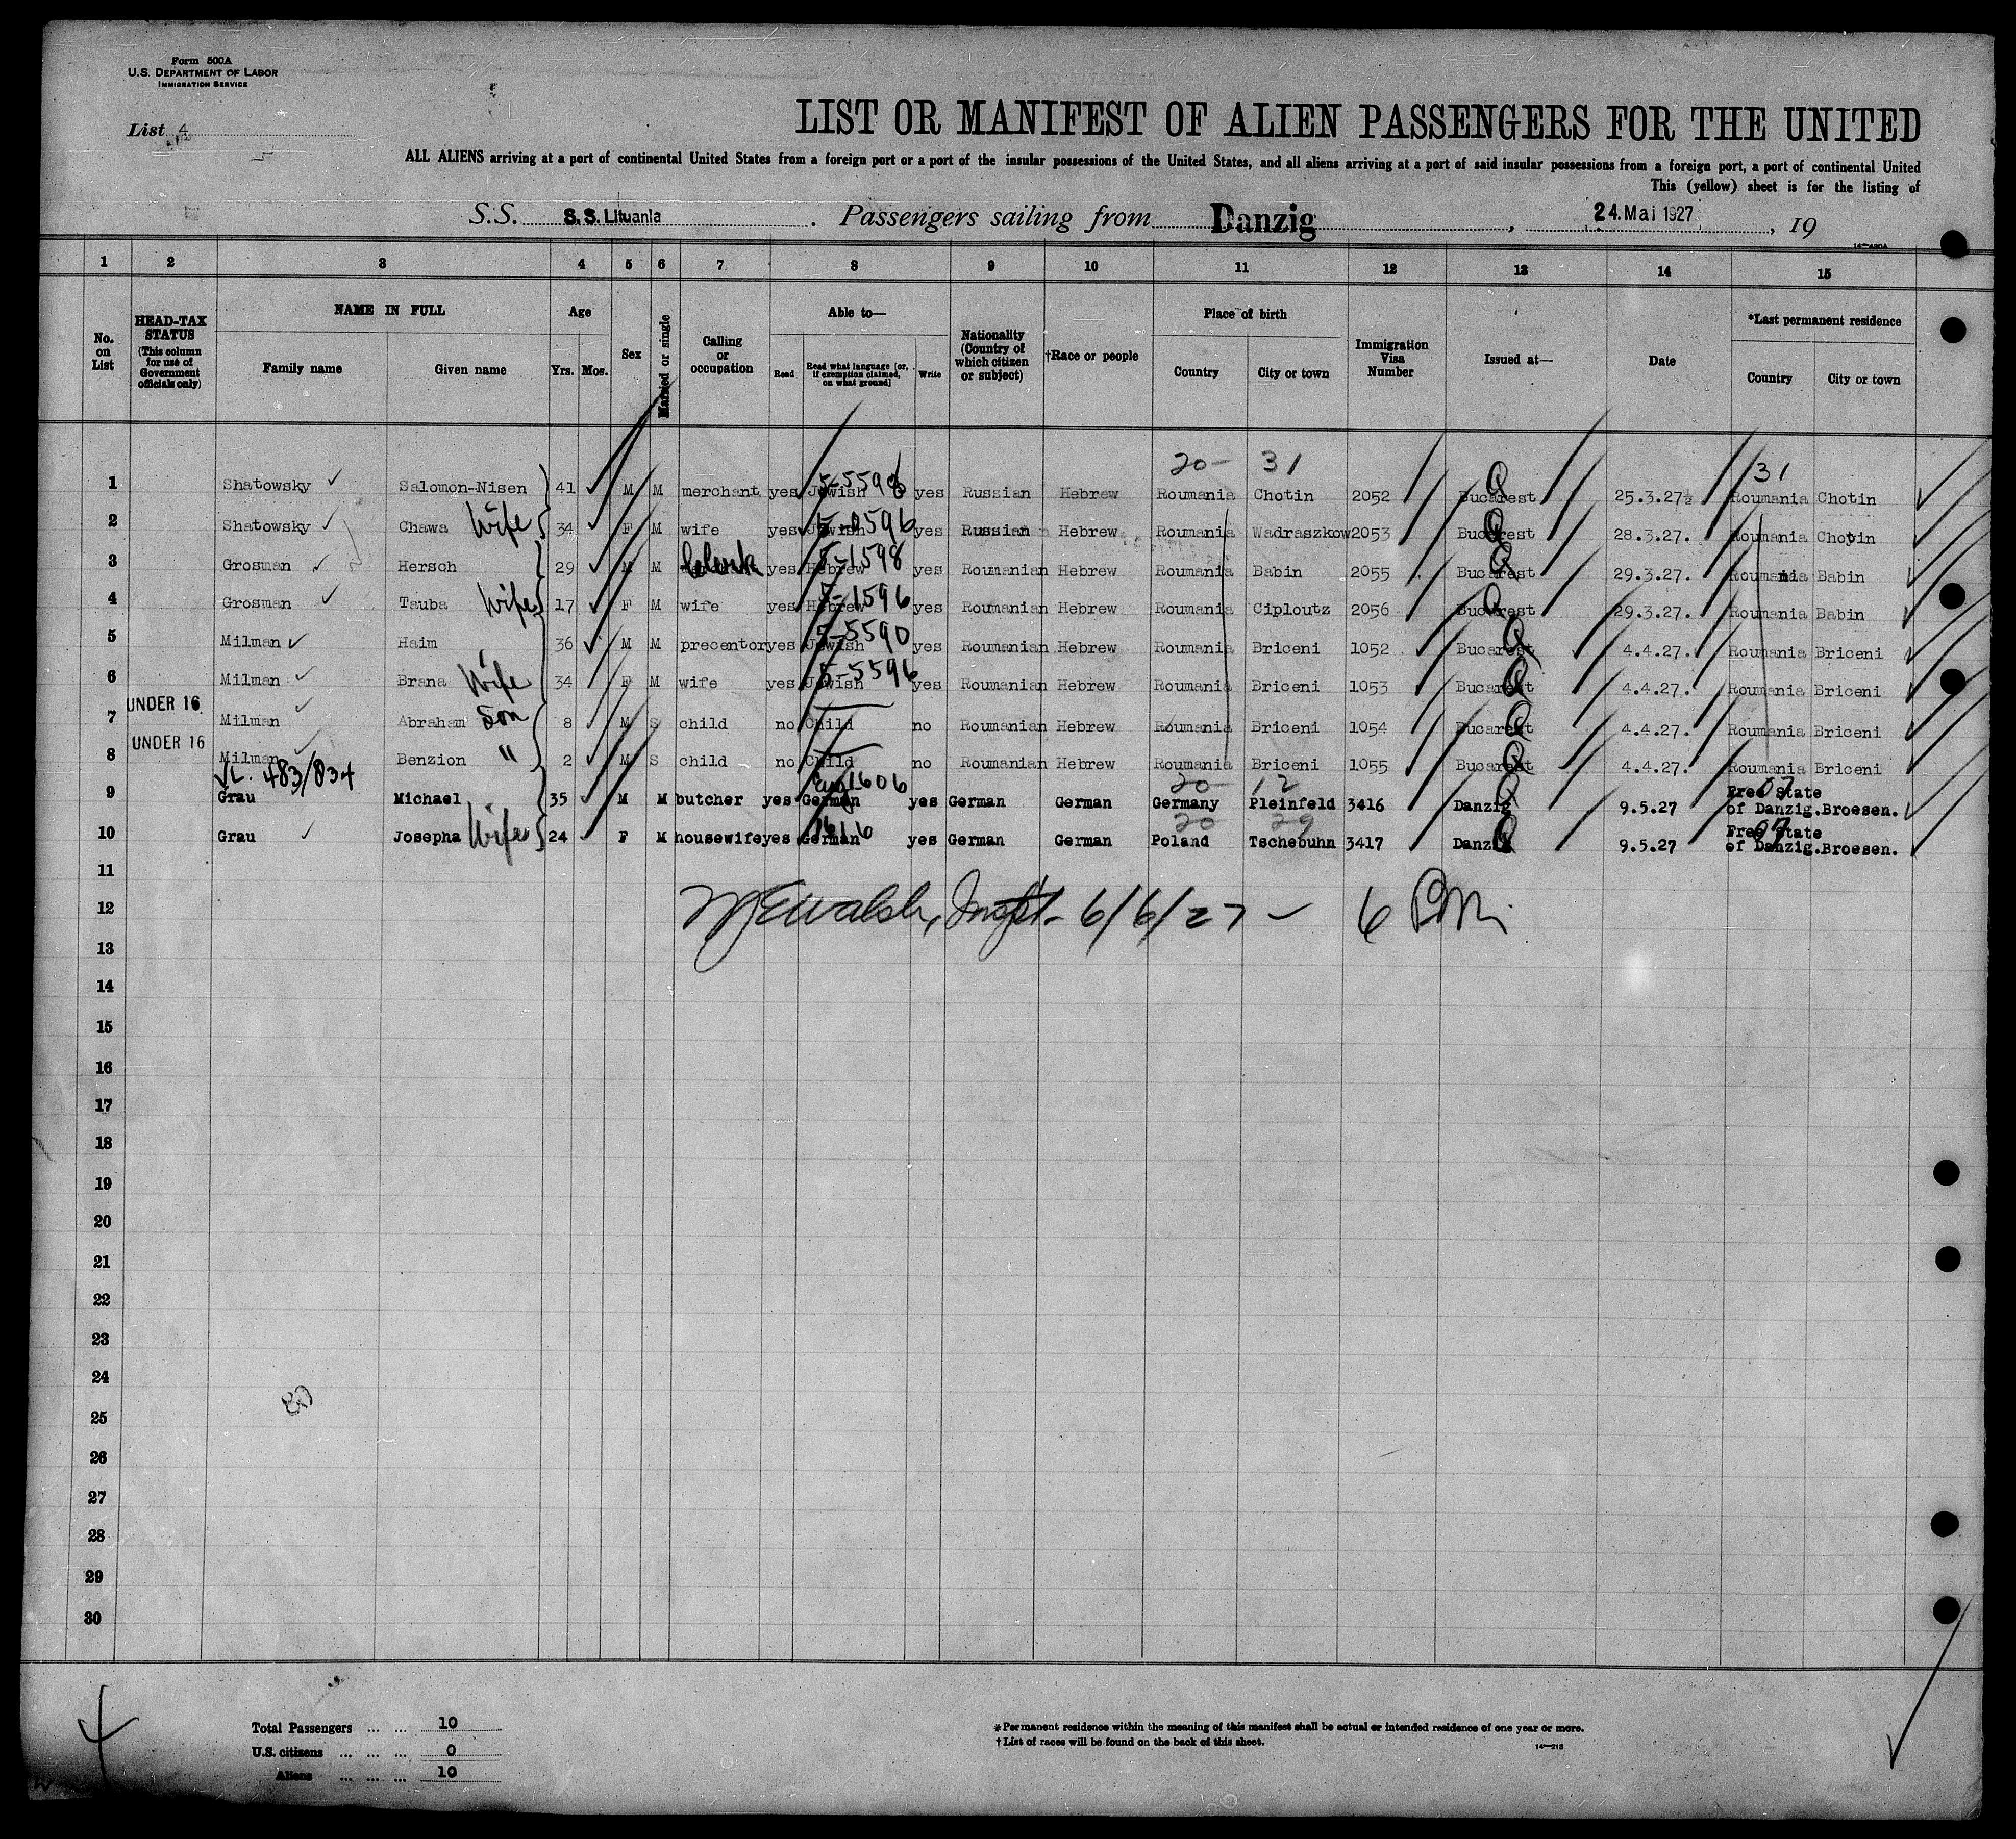 Form 500A
U.S. DEPARTMENT OF LABOR
IMMIGRATION SERVICE
List 4
LIST OR MANIFEST OF ALIEN PASSENGERS FOR THE UNITED
ALL ALIENS arriving at a port of continental United States from a foreign port or a port of the insular possessions of the United States, and all aliens arriving at a port of said insular possessions from a foreign port, a port of continental United
This (yellow) sheet is for the listing of
S.S. S.S. Lituania. Passengers sailing from Danzig, 24. Mai 1927, 19
1 2 3 4 5 6 7 8 9 10 11 12 13 14 15
No. on List
HEAD-TAX STATUS (This column for use of Government officials only)
NAME IN FULL
Family name Given name
Age
Yrs. Mos.
Sex
Married or single
Calling or occupation
Able to—
Read Read what language [or, if exemption claimed, on what ground] Write
Nationality (Country of which citizen or subject)
†Race or people
Place of birth
Country City or town
Immigration Visa Number
Issued at—
Date
*Last permanent residence
Country City or town
20- 31 31
1 Shatowsky Salomon-Nisen 41 M M merchant yes Jewish yes Russian Hebrew Roumania Chotin 2052 Bucarest 25.3.27 Roumania Chotin
2 Shatowsky Chawa Wife 34 F M wife yes Jewish 5-5596 yes Russian Hebrew Roumania Wadraszkow 2053 Bucarest 28.3.27. Roumania Chotin
3 Grosman Hersch 29 M M Clerk yes Hebrew 5-1598 yes Roumanian Hebrew Roumania Babin 2055 Bucarest 29.3.27. Roumania Babin
4 Grosman Tauba Wife 17 F M wife yes Hebrew 5-1596 yes Roumanian Hebrew Roumania Ciploutz 2056 Bucarest 29.3.27. Roumania Babin
5 Milman Haim 36 M M precentor yes Jewish 5-5590 yes Roumanian Hebrew Roumania Briceni 1052 Bucarest 4.4.27. Roumania Briceni
6 Milman Brana Wife 34 F M wife yes Jewish 5-5596 yes Roumanian Hebrew Roumania Briceni 1053 Bucarest 4.4.27. Roumania Briceni
UNDER 16
7 Milman Abraham Son 8 M S child no Child no Roumanian Hebrew Roumania Briceni 1054 Bucarest 4.4.27. Roumania Briceni
UNDER 16
8 Milman Benzion " 2 M S child no Child no Roumanian Hebrew Roumania Briceni 1055 Bucarest 4.4.27. Roumania Briceni
VL. 483/834 20- 12 07
9 Grau Michael 35 M M butcher yes German yes German German Germany Pleinfeld 3416 Danzig 9.5.27 Free State of Danzig. Broesen.
20 29 07
10 Grau Josepha Wife 24 F M housewife yes German yes German German Poland Tschebuhn 3417 Danzig 9.5.27 Free State of Danzig. Broesen.
11
12 Walsh, Inspt. 6/6/27 - 6 PM.
13
14
15
16
17
18
19
20
21
22
23
24
25
26
27
28
29
30
4
Total Passengers ... ... 10
U.S. citizens ... ... ... 0
Aliens ... ... ... 10
*Permanent residence within the meaning of this manifest shall be actual or intended residence of one year or more.
†List of races will be found on the back of this sheet.
14—213